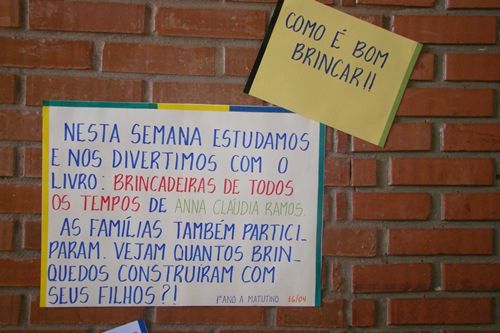 COMO É BOM
BRINCAR!!
NESTA SEMANA ESTUDAMOS
E NOS DIVERTIMOS COM O
LIVRO: BRINCADEIRAS DE TODOS
OS TEMPOS DE ANNA CLAÚDIA RAMOS.
AS FAMÍLIAS TAMBÉM PARTICI-
PARAM. VEJAM QUANTOS BRIN-
QUEDOS CONSTRUÍRAM COM
SEUS FILHOS?!
1º ANO A MATUTINO 16/04